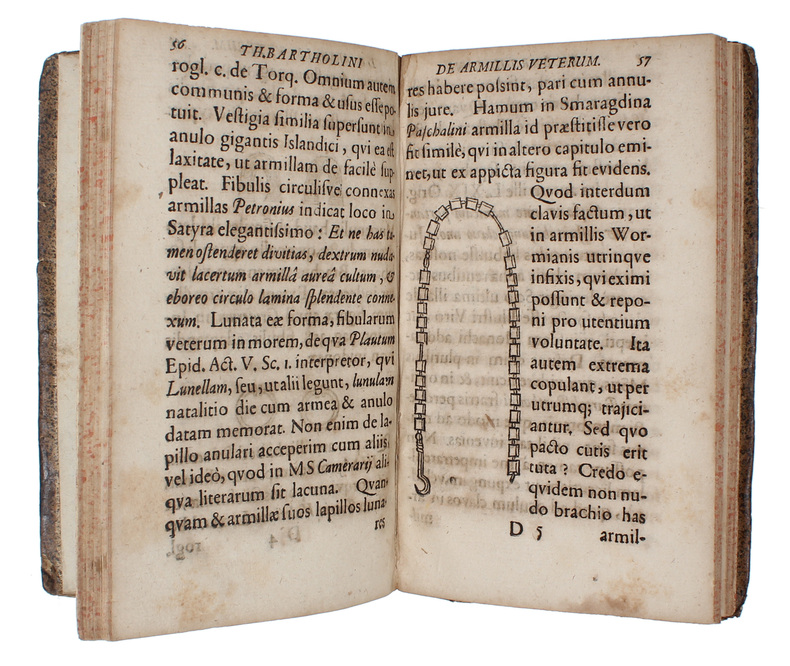 56
TH. BARTHOLINI
rogl. c. de Torq. Omnium autem
communis & forma & uſus eſſe po-
tuit. Veſtigia ſimilia ſuperſunt in
anulo gigantis Iſlandici, qvi ea eſt
laxitate, ut armillam de facilè ſup-
pleat. Fibulis circuliſve connexas
armillas Petronius indicat loco in
Satyra elegantiſſimo: Et ne has ta-
men oſtenderet divitias, dextrum nuda-
vit lacertum armillâ aureâ cultum, &
eboreo circulo lamina ſplendente conne-
xum. Lunata eæ forma, fibularum
veterum in morem, de qva Plautum
Epid. Act. V. Sc. 1. interpretor, qvi
Lunellam, ſeu, ut alii legunt, lunulam
natalitio die cum armea & anulo
datam memorat. Non enim de la-
pillo anulari acceperim cum aliis,
vel ideò, qvod in MS Camerarij ali-
qva literarum ſit lacuna. Quan-
qvam & armillæ ſuos lapillos luna-
res
DE ARMILLIS VETERUM. 57
res habere poſſint, pari cum annu-
lis jure. Hamum in Smaragdina
Paſchalini armilla id præſtitiſſe vero
fit ſimilè, qvi in altero capitulo emi-
net, ut ex appicta figura fit evidens.
Qvod interdum
clavis factum, ut
in armillis Wor-
mianis utrinqve
infixis, qvi eximi
poſſunt & repo-
ni pro utentium
voluntate. Ita
autem extrema
copulant, ut per
utrumq; trajici-
antur. Sed qvo
pacto cutis erit
tuta? Credo e-
qvidem non nu-
do brachio has
D 5 armil-